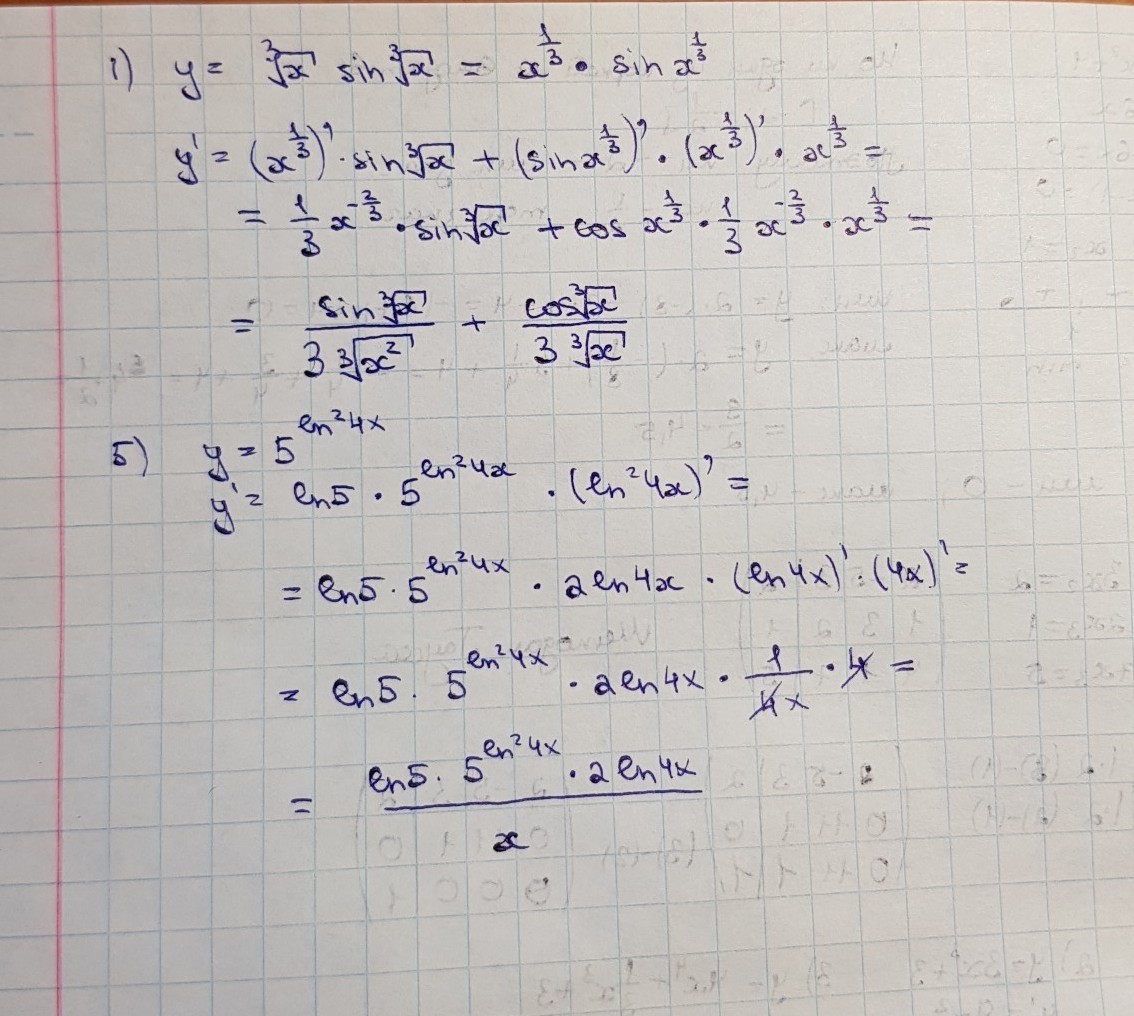 1) y = ∛x sin∛x = x^{1/3} · sin x^{1/3}
y' = (x^{1/3})' · sin∛x + (sin x^{1/3})' · (x^{1/3})' · x^{1/3} =
= 1/3 x^{-2/3} · sin∛x + cos x^{1/3} · 1/3 x^{-2/3} · x^{1/3} =
= sin∛x / 3∛x² + cos∛x / 3∛x
5) y = 5^{ln²4x}
y' = ln5 · 5^{ln²4x} · (ln²4x)' =
= ln5 · 5^{ln²4x} · 2ln4x · (ln4x)' · (4x)' =
= ln5 · 5^{ln²4x} · 2ln4x · 1/4x · 4 =
= ln5 · 5^{ln²4x} · 2ln4x / x